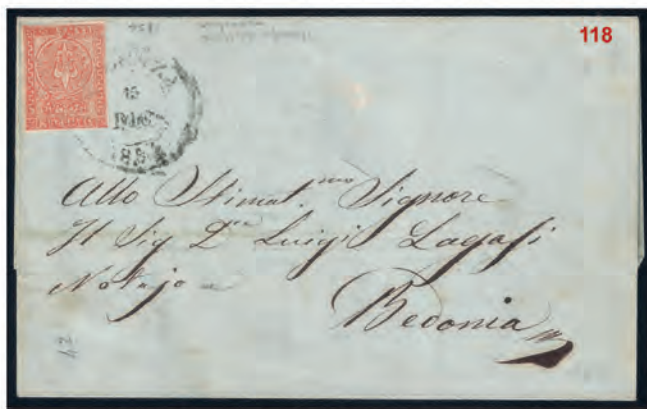 118
15
185
Allo Stimat.mo Signore
Il Sig Dre Luigi Lagasi
Notajo
Bedonia